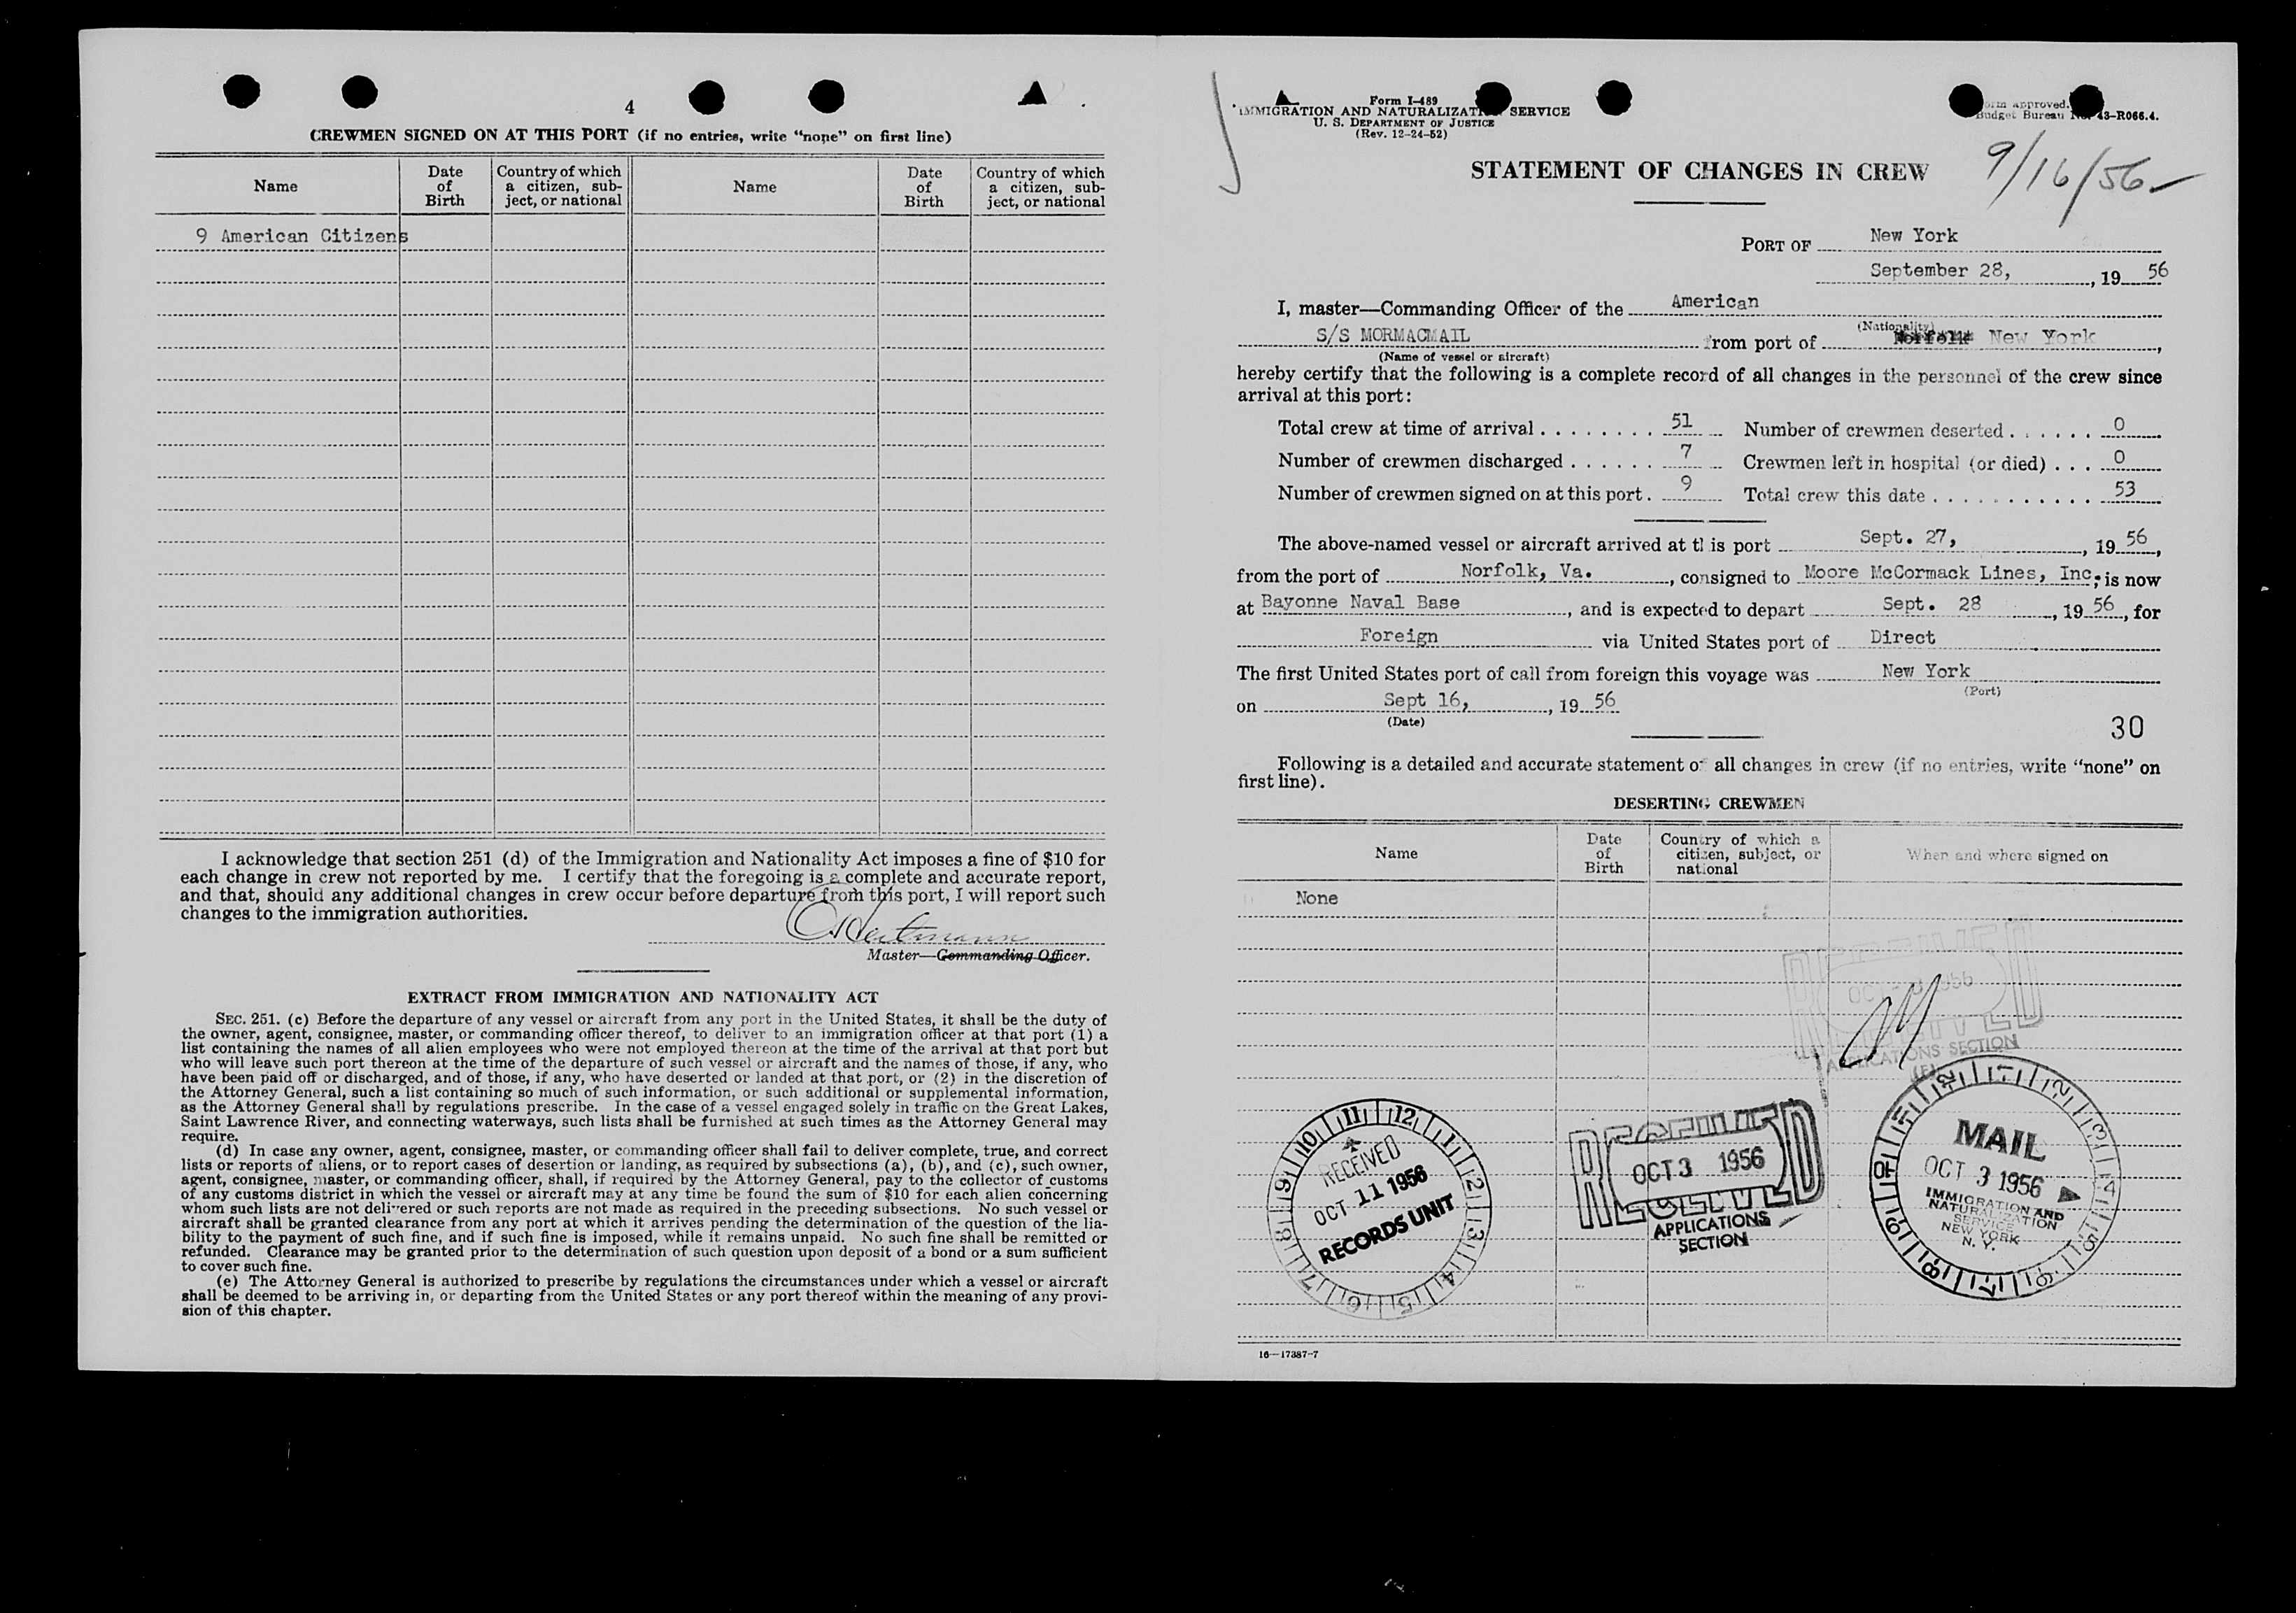 4
CREWMEN SIGNED ON AT THIS PORT (if no entries, write "none" on first line)
Name
Date of Birth
Country of which a citizen, subject, or national
Name
Date of Birth
Country of which a citizen, subject, or national
9 American Citizens
I acknowledge that section 251 (d) of the Immigration and Nationality Act imposes a fine of $10 for
each change in crew not reported by me. I certify that the foregoing is a complete and accurate report,
and that, should any additional changes in crew occur before departure from this port, I will report such
changes to the immigration authorities.
Master—Commanding Officer.
EXTRACT FROM IMMIGRATION AND NATIONALITY ACT
SEC. 251. (c) Before the departure of any vessel or aircraft from any port in the United States, it shall be the duty of
the owner, agent, consignee, master, or commanding officer thereof, to deliver to an immigration officer at that port (1) a
list containing the names of all alien employees who were not employed thereon at the time of the arrival at that port but
who will leave such port thereon at the time of the departure of such vessel or aircraft and the names of those, if any, who
have been paid off or discharged, and of those, if any, who have deserted or landed at that port, or (2) in the discretion of
the Attorney General, such a list containing so much of such information, or such additional or supplemental information,
as the Attorney General shall by regulations prescribe. In the case of a vessel engaged solely in traffic on the Great Lakes,
Saint Lawrence River, and connecting waterways, such lists shall be furnished at such times as the Attorney General may
require.
(d) In case any owner, agent, consignee, master, or commanding officer shall fail to deliver complete, true, and correct
lists or reports of aliens, or to report cases of desertion or landing, as required by subsections (a), (b), and (c), such owner,
agent, consignee, master, or commanding officer, shall, if required by the Attorney General, pay to the collector of customs
of any customs district in which the vessel or aircraft may at any time be found the sum of $10 for each alien concerning
whom such lists are not delivered or such reports are not made as required in the preceding subsections. No such vessel or
aircraft shall be granted clearance from any port at which it arrives pending the determination of the question of the lia-
bility to the payment of such fine, and if such fine is imposed, while it remains unpaid. No such fine shall be remitted or
refunded. Clearance may be granted prior to the determination of such question upon deposit of a bond or a sum sufficient
to cover such fine.
(e) The Attorney General is authorized to prescribe by regulations the circumstances under which a vessel or aircraft
shall be deemed to be arriving in, or departing from the United States or any port thereof within the meaning of any provi-
sion of this chapter.
Form I-489
IMMIGRATION AND NATURALIZATION SERVICE
U. S. DEPARTMENT OF JUSTICE
(Rev. 12-24-52)
Form approved.
Budget Bureau No. 43-R066.4.
STATEMENT OF CHANGES IN CREW
9/16/56
PORT OF New York
September 28, , 19 56
I, master—Commanding Officer of the American
(Nationality)
S/S MORMACMAIL from port of Norfolk New York ,
(Name of vessel or aircraft)
hereby certify that the following is a complete record of all changes in the personnel of the crew since
arrival at this port:
Total crew at time of arrival . . . . . . . . 51 Number of crewmen deserted . . . . . . 0
Number of crewmen discharged . . . . . . 7 Crewmen left in hospital (or died) . . . 0
Number of crewmen signed on at this port . 9 Total crew this date . . . . . . . . . . . . 53
The above-named vessel or aircraft arrived at this port Sept. 27, , 19 56,
from the port of Norfolk, Va. , consigned to Moore McCormack Lines, Inc. ; is now
at Bayonne Naval Base , and is expected to depart Sept. 28 , 19 56, for
Foreign via United States port of Direct
The first United States port of call from foreign this voyage was New York
(Port)
on Sept 16, , 19 56
(Date)
30
Following is a detailed and accurate statement of all changes in crew (if no entries, write "none" on
first line).
DESERTING CREWMEN
Name
Date of Birth
Country of which a citizen, subject, or national
When and where signed on
None
RECEIVED
APPLICATIONS SECTION
RECEIVED
OCT 11 1956
RECORDS UNIT
RECEIVED
OCT 3 1956
APPLICATIONS
SECTION
MAIL
OCT 3 1956
IMMIGRATION AND
NATURALIZATION
SERVICE
NEW YORK
N. Y.
16—17387-7